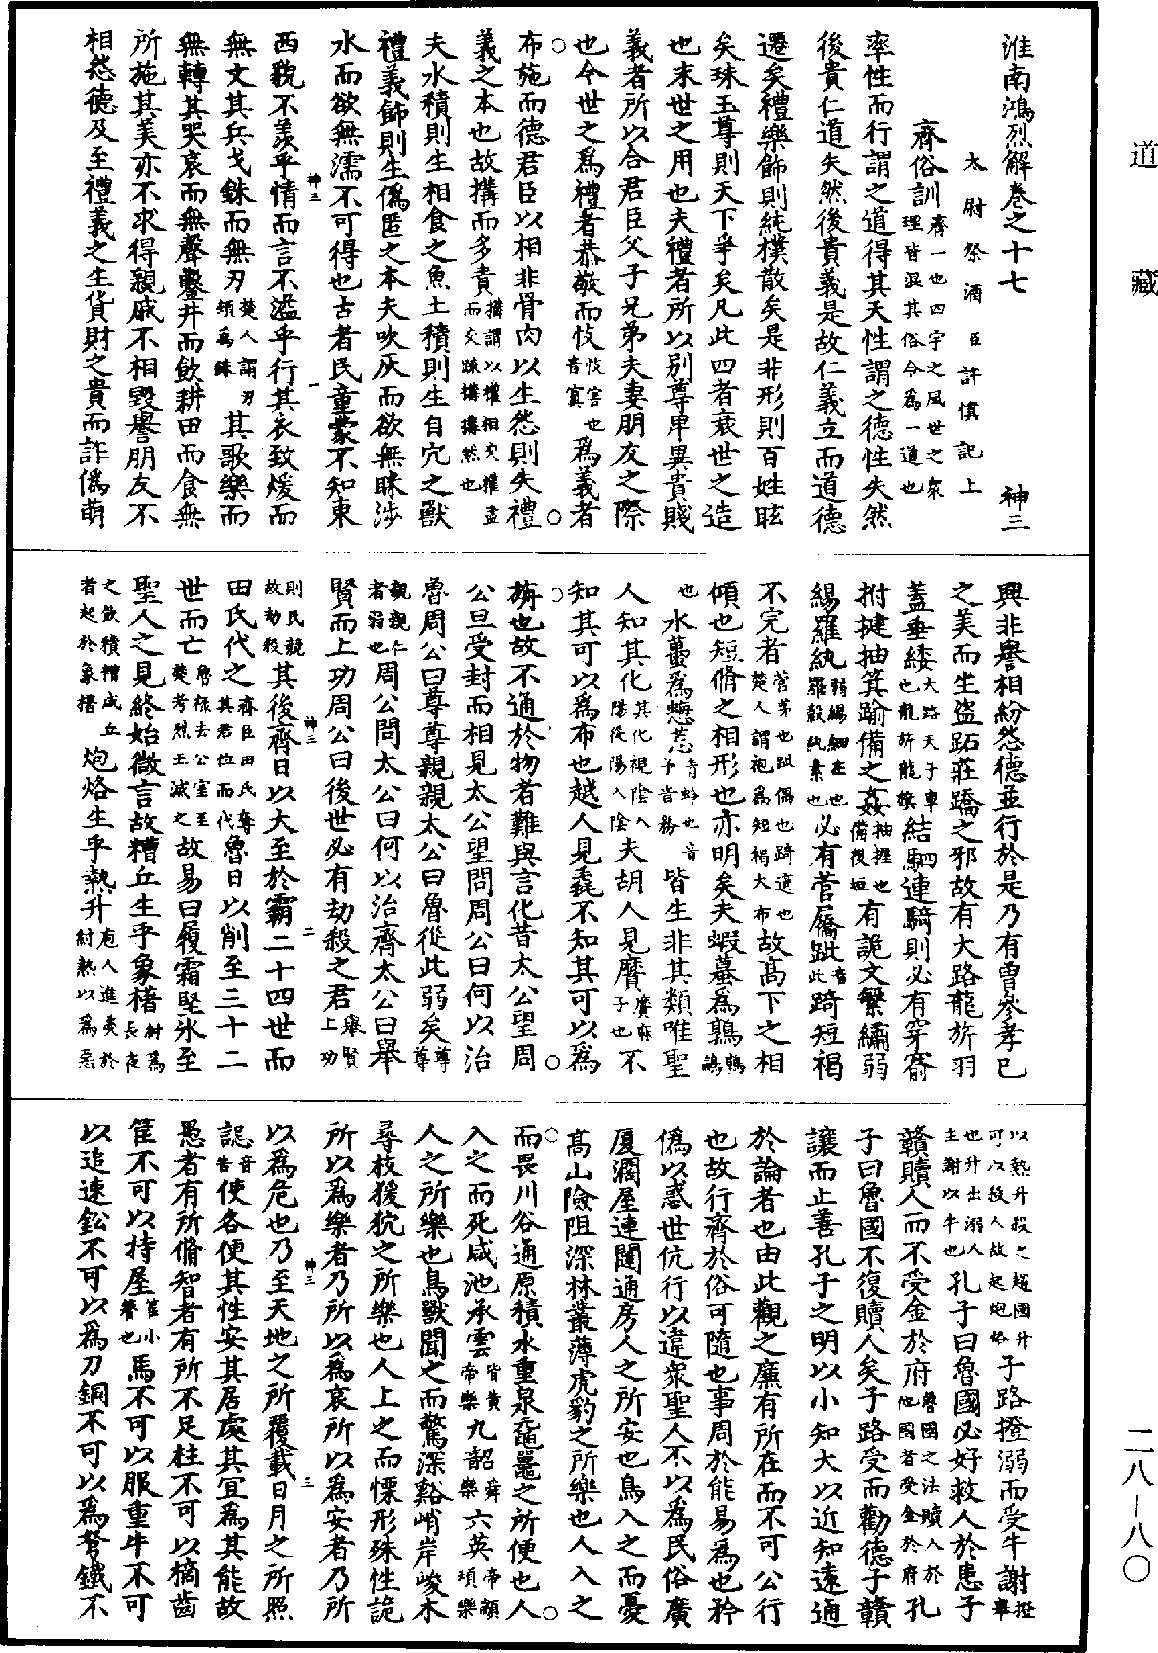 道藏
二八—八〇
淮南鴻烈解卷之十七 神三
太尉祭酒臣許慎記上
齊俗訓齊一也四宇之風世之衆理皆混其俗令為一道也
率性而行謂之道得其天性謂之德性失然
後貴仁道失然後貴義是故仁義立而道德
遷矣禮樂飾則純樸散矣是非形則百姓眩
矣珠玉尊則天下爭矣凡此四者衰世之造
也末世之用也夫禮者所以別尊卑異貴賤
義者所以合君臣父子兄弟夫妻朋友之際
也今世之為禮者恭敬而忮忮害也音寘為義者
布施而德君臣以相非骨肉以生怨則失禮
義之本也故搆而多責搆謂以權相交權盡而交踈搆搆然也
夫水積則生相食之魚土積則生自宂之獸
禮義飾則生偽匿之本夫吹灰而欲無眯涉
水而欲無濡不可得也古者民童蒙不知東
西貌不羨乎情而言不溢乎行其衣致煖而
無文其兵戈銖而無刃楚人謂刃頓為銖其歌樂而
無轉其哭哀而無聲鑿井而飲耕田而食無
所施其美亦不求得親戚不相毀譽朋友不
相怨德及至禮義之生貨財之貴而詐偽萌
興非譽相紛怨德並行於是乃有曾參孝已
之美而生盜跖莊蹻之邪故有大路龍旂羽
蓋垂緌大路天子車也龍旂龍旗結駟連騎則必有穿窬
拊揵抽箕踰備之姦抽握也備後垣有詭文繁繡弱
緆羅紈弱緆細布也羅縠紈素也必有菅屩跐音此踦短褐
不完者菅茅也跐偶也踦適也楚人謂袍為短褐大布故高下之相
傾也短脩之相形也亦明矣夫蝦蟇為鶉鶉鷃
也水蠆為蟌莣青蛉也音予音務皆生非其類唯聖
人知其化其化視陰入陽從陽入陰夫胡人見黂黂麻子也不
知其可以為布也越人見毳不知其可以為
旃也故不通於物者難與言化昔太公望周
公旦受封而相見太公望問周公曰何以治
魯周公曰尊尊親親太公曰魯從此弱矣尊尊
親親仁者弱也周公問太公曰何以治齊太公曰舉
賢而上功周公曰後世必有劫殺之君舉賢上功
則民競故劫殺其後齊日以大至於霸二十四世而
田氏代之齊臣田氏奪其君位而代魯日以削至三十二
世而亡魯祿去公室至楚考烈王滅之故易曰履霜堅氷至
聖人之見終始微言故糟丘生乎象楮紂為長夜
之飲積糟成丘者起於象楮炮烙生乎熱升庖人進羮於紂熱以為惡
以熱升投之趙國升可以殺人故起炮烙子路撜溺而受牛謝撜舉
也升出溺人主謝以牛也孔子曰魯國必好救人於患子
贛贖人而不受金於府魯國之法贖人於他國者受金於府孔
子曰魯國不復贖人矣子路受而勸德子贛
讓而止善孔子之明以小知大以近知遠通
於論者也由此觀之廉有所在而不可公行
也故行齊於俗可隨也事周於能易為也矜
偽以惑世伉行以違衆聖人不以為民俗廣
厦濶屋連闥通房人之所安也鳥入之而憂
高山險阻深林叢薄虎豹之所樂也人入之
而畏川谷通原積水重泉黿鼉之所便也人
入之而死咸池承雲皆黃帝樂九韶舜樂六英帝顓頊樂
人之所樂也鳥獸聞之而驚深谿峭岸峻木
尋枝猨狖之所樂也人上之而慄形殊性詭
所以為樂者乃所以為哀所以為安者乃所
以為危也乃至天地之所覆載日月之所照
誋音告使各便其性安其居處其宜為其能故
愚者有所脩智者有所不足柱不可以摘齒
筐不可以持屋筐小簪也馬不可以服重牛不可
以追速鈆不可以為刀銅不可以為弩鐵不